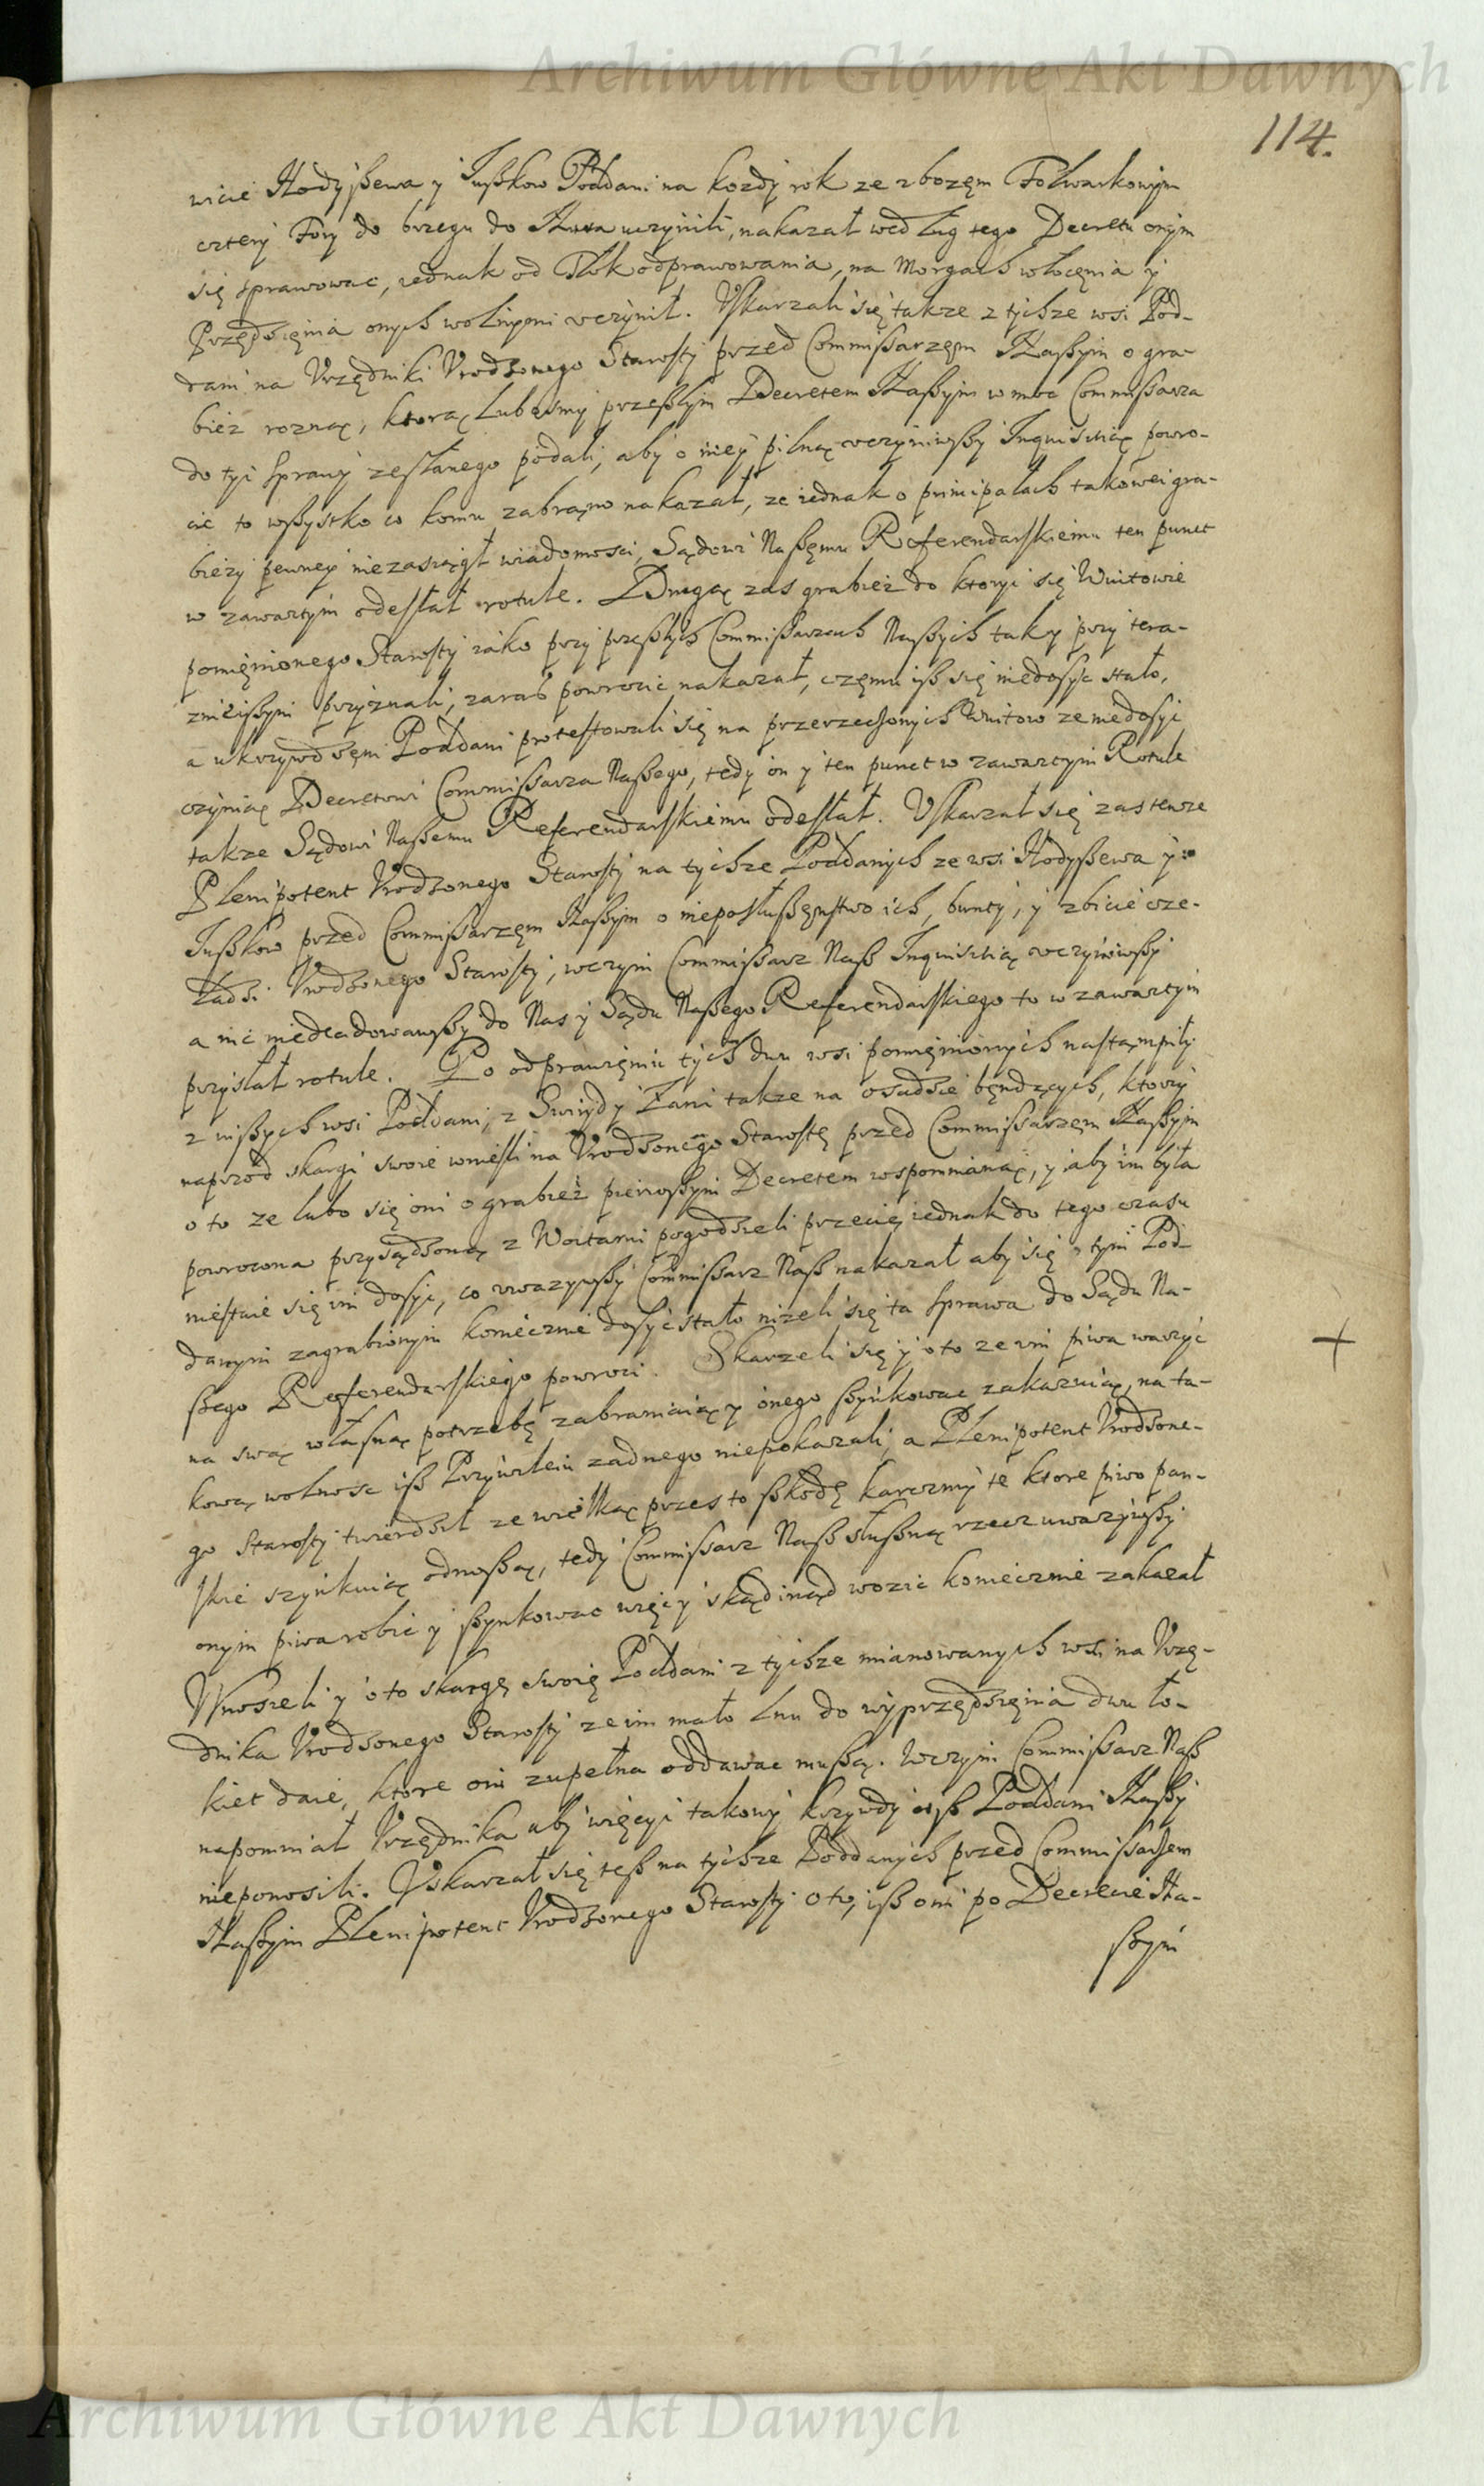 Archiwum Główne Akt Dawnych
114.
wicie Hodyßewa y Jußkow Poddani na kozdy rok ze zbozęm Folwarkowym
cztery Fory do brzegu do Nura uczynili, nakazał według tego Decretu onym
się sprawowac, iednak od Tłok odprawowania, na Morgach włoczęnia y
Przędzięnia onych wolnymi uczynił. Vskarzali się takze z tychze wsi Pod-
dani na Vrzędniki Vrodzonego Starosty przed Commissarzęm Naßym o gra-
biez roznąx, ktorąx lubesmy przeßłym Decretem Naßym w moc Commissarza
do tyi sprawy zesłanego podali, aby o niey pilnąx uczyniwßy Inquisitiąx powro-
cic to wßystko co komu zabrano nakazał, ze iednak o principałach takowei gra-
biezy pewney niezasiągł wiadomosci, Sądowi Naßęmu Referendarskiemu ten punct
w zawartym odesłał rotule. Drugąx zas grabiez do ktoryi się Wuitowie
pomięnionego Starosty iako przy przeßłych Commissarzach Naßych tak y przy tera-
znieißym przyznali, zaraz powrocic nakazał, częmu iß się niedosyc stało,
a ukrzywdzęni Poddani protestowali się na przerzeczonych Wuitow ze niedosyc
czyniąx Decretowi Commissarza Naßego, tedy on y ten punct w zawartym Rotule
takze Sądowi Naßemu Referendarskiemu odesłał. Vskarzał się zas tenze
Plenipotent Vrodzonego Starosty na tychze Poddanych ze wsi Hodyßewa y
Jußkow przed Commissarzęm Naßym o niepołußęnstwo ich, bunty, y zbicie cze-
ladzi Vrodzonego Starosty, wczym Commissarz Naß Inquisitią uczyniwßy
a nic niedladowawßy do Nas y Sądu Naßego Referendarskiego to w zawartym
przysłał rotule. Po odprawięniu tych dwu wsi pomięnionych nastąmpiły
z inßych wsi Poddani, z Swirydy Zani takze na osadzie będących, ktorzy
naprzod skargi swoie wniesli na Vrodzonego Starostę przed Commissarzęm Naßym
o to ze lubo się oni o grabiez pierwßym Decretem wspomnianąx, y aby im była
powrocona przysądzonąx z Woitami pogodzieli przecię iednak do tego czasu
niestaie się im dosyc, co uwazywßy Commissarz Naß nakazał aby się z tym Pod-
danym zagrabionym koniecznie dosyc stało nizeli się ta sprawa do Sądu Na-
ßego Referendarskiego powroci. Skarzeli się y o to ze im piwa warzyc
na swąx własnąx potrzebę zabraniaiąx y onego ßynkowac zakazuiąx, na ta-
kowąx wolnosc iß Przywileiu zadnego niepokazali, a Plenipotent Vrodzone-
go Starosty twierdził ze wielkąx przes to ßkodę karczmy te ktore piwo pan-
skie szynkuiąx odnoßąx, tedy Commissarz Naß słußnąx rzecz uwazywßy
onym piwa robic y ßynkowac więcy skądinąd wozic koniecznie zakazał
Wnosieli y o to skargę swoię Poddani z tychze mianowanych wsi na Vrzę-
dnika Vrodzonego Starosty ze im mało lnu do wyprzędzięnia dwu ło-
kiet daie, ktore oni zupełna oddawac mußą. Wczym Commissarz Naß
napomniał Vrzędnika aby więcyi takowy krzywdy Poddani Naßy
nieponosili. Vskarzał się teß na tychze Poddanych przed Commissarzem
Naßym Plenipotent Vrodzonego Starosty o to, iß oni po Decrecie Na-
ßym
Archiwum Główne Akt Dawnych